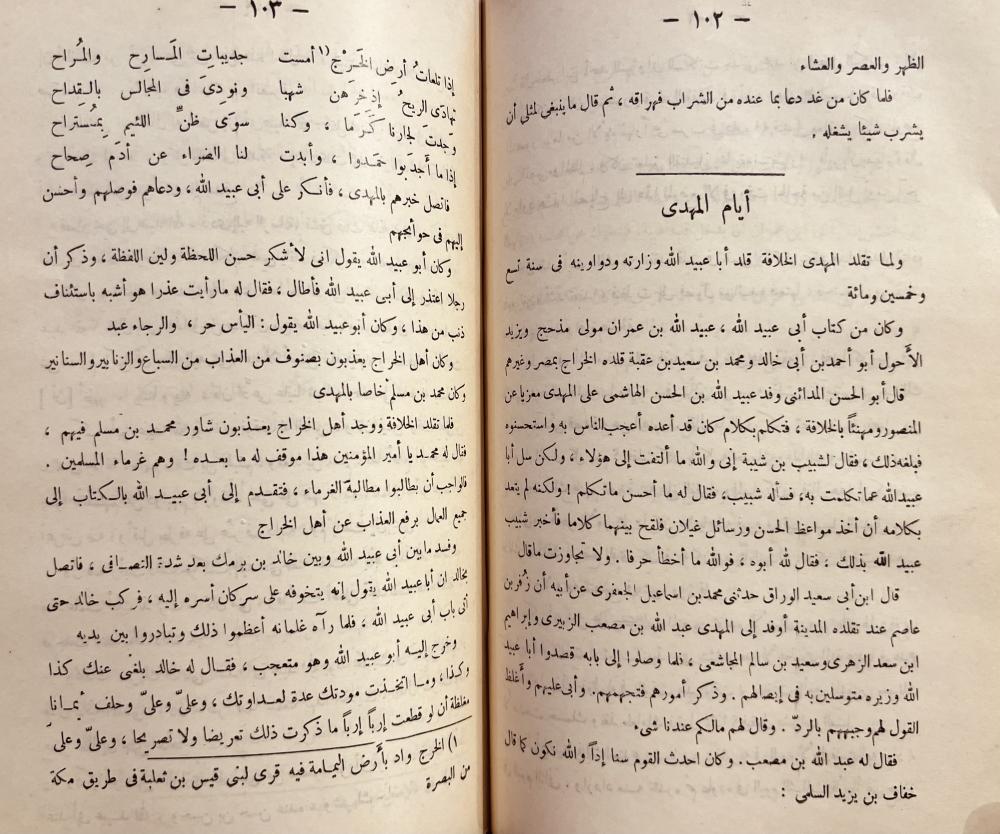 — ١٠٢ —
الظهر والعصر والعشاء
فلما كان من غد دعا بما عنده من الشراب فهراقه ، ثم قال ما ينبغى لمثلى أن
يشرب شيئا يشغله .
أيام المهدى
ولما تقلد المهدى الخلافة قلد أبا عبيد الله وزارته ودواوينه فى سنة تسع
وخمسين ومائة
وكان من كتاب أبى عبيد الله ، عبيد الله بن عمران مولى مذحج ويزيد
الأحول أبو أحمد بن أبى خالد ومحمد بن سعيد بن عقبة قلده الخراج بمصر وغيرهم
قال أبو الحسن المدائنى وفد عبيد الله بن الحسن الهاشمى على المهدى معزيا عن
المنصور ومهنئاً بالخلافة ، فتكلم بكلام كان قد أعده أعجب الناس به واستحسنوه
فبلغه ذلك ، فقال لشبيب بن شيبة إنى والله ما ألتفت إلى هؤلاء ، ولكن سل أبا
عبيد الله عما تكلمت به ، فسأله شبيب ، فقال له ما أحسن ما تكلم ! ولكنه لم يتعد
بكلامه أن أخذ مواعظ الحسن ورسائل غيلان فلقح بينهما كلاما فأخبر شبيب
عبيد الله بذلك ، فقال لله أبوه ، فوالله ما أخطأ حرفا . ولا تجاوزت ماقال
قال ابن أبى سعيد الوراق حدثنى محمد بن اسماعيل الجعفرى عن أبيه أن زُفر بن
عاصم عند تقلده المدينة أوفد إلى المهدى عبد الله بن مصعب الزبيرى وإبراهيم
ابن سعد الزهرى وسعيد بن سالم المجاشعى ، فلما وصلوا إلى بابه قصدوا أبا عبيد
الله وزيره متوسلين به فى إيصالهم . وذكر أمورهم فتجهمهم . وأبى عليهم وأغلظ
القول لهم وجبههم بالردّ . وقال لهم مالكم عندنا شىء
فقال له عبد الله بن مصعب . وكان احدث القوم سنا إذاً والله نكون كما قال
خفاف بن يزيد السلمى :
— ١٠٣ —
إذا تلعاتُ أرض الخَرْج (١ أمست جديباتِ المَسارِح والمُراح
تهادَى الريحُ إذخرَهن شهبا ونودِىَ فى المجالس بالقِداح
وجدتَ لجارنا كرَما ، وكنا سوَى ظنِّ اللئيم بمُستراح
إذا ما أجدَبوا حمَدوا ، وأبدت لنا الضراء عن أدَم صحاح
فاتصل خبرهم بالمهدى ، فأنكر على أبى عبيد الله ، ودعاهم فوصلهم وأحسن
إليهم فى حوائجهم
وكان أبو عبيد الله يقول انى لأشكر حسن اللحظة ولين اللفظة ، وذكر أن
رجلا اعتذر إلى أبى عبيد الله فأطال ، فقال له ما رأيت عذرا هو أشبه باستئناف
ذنب من هذا ، وكان أبو عبيد الله يقول : اليأس حر ، والرجاء عبد
وكان أهل الخراج يعذبون بصنوف من العذاب من السباع والزنابير والسنانير
وكان محمد بن مسلم خاصا بالمهدى
فلما تقلد الخلافة ووجد أهل الخراج يعذبون شاور محمد بن مسلم فيهم ،
فقال له محمد يا أمير المؤمنين هذا موقف له ما بعده ! وهم غرماء المسلمين .
فالواجب أن يطالبوا مطالبة الغرماء ، فتقدم إلى أبى عبيد الله بالكتاب إلى
جميع العمال برفع العذاب عن أهل الخراج
وفسد ما بين أبى عبيد الله وبين خالد بن برمك بعد شدة التصافى ، فاتصل
بخالد ان أبا عبيد الله يقول إنه يتخوفه على سركان أسره إليه ، فركب خالد حتى
أتى باب أبى عبيد الله ، فلما رآه غلمانه أعظموا ذلك وتبادروا بين يديه
وخرج إليه أبو عبيد الله وهو متعجب ، فقال له خالد بلغنى عنك كذا
وكذا ، وما اتخذت مودتك عدة لعداوتك ، وعلىّ وعلىّ وحلف أيمانا
مغلظة أن لو قطعت إرباً إرباً ما ذكرت ذلك تعريضا ولا تصريحا ، وعلىّ وعلىّ
١) الخرج واد بأرض اليمامة فيه قرى لبنى قيس بن ثعلبة فى طريق مكة
من البصرة